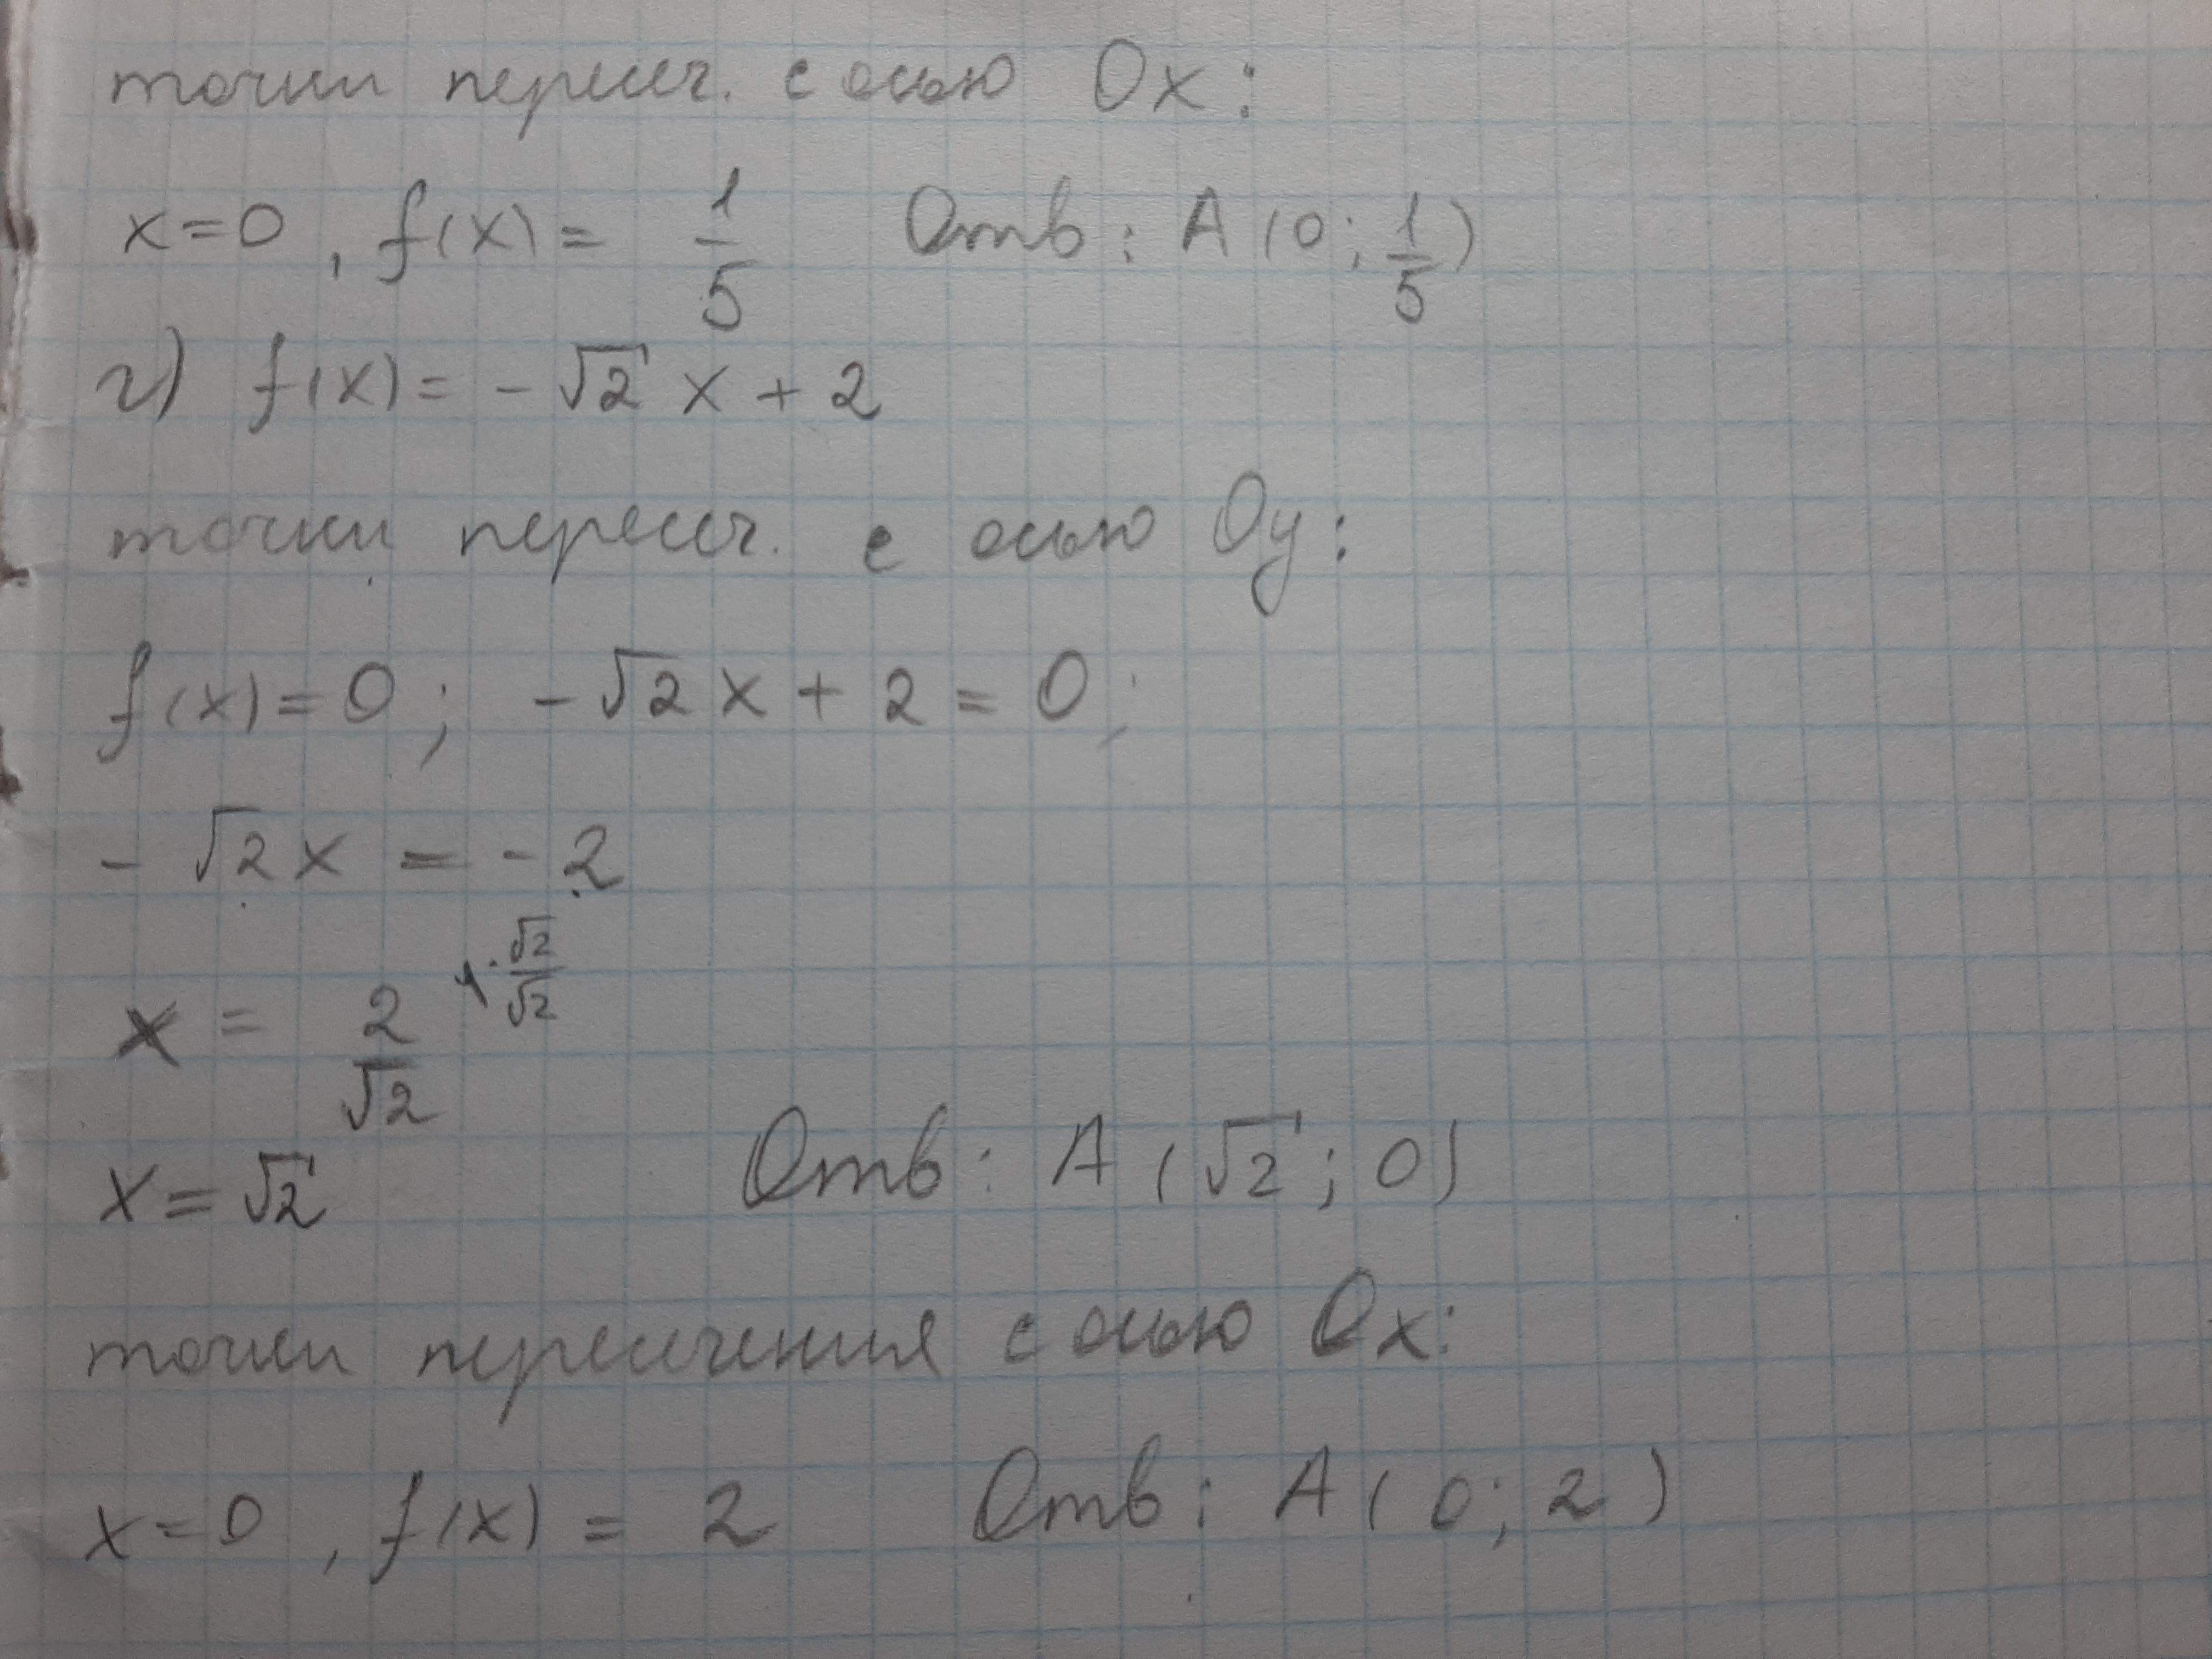 точки пересеч. с осью Ox:
x=0, f(x) = 1/5 Отв: A (0; 1/5)
г) f(x) = -√2 x + 2
точки пересеч. с осью Oy:
f(x)=0; -√2 x + 2 = 0;
-√2 x = -2
x = 2/√2 \· √2/√2
x = √2 Отв: A (√2; 0)
точки пересечения с осью Ox:
x=0, f(x) = 2 Отв: A (0; 2)